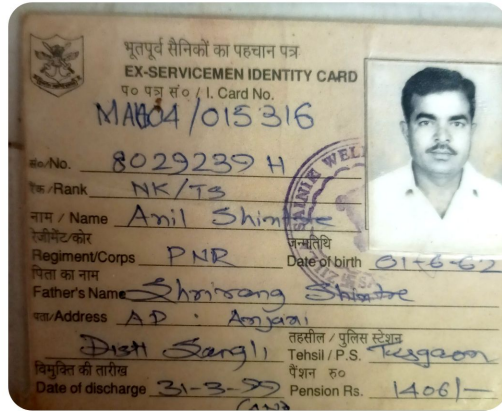 भूतपूर्व सैनिकों का पहचान पत्र
EX-SERVICEMEN IDENTITY CARD
प० पत्र सं० / I. Card No.
MAH04/015316
सं०/No. 8029239 H
रैंक/Rank NK/TS
नाम / Name Anil
रेजीमेंट/कोर जन्मतिथि
Regiment/Corps PNR Date of birth 01-6-62
पिता का नाम
Father's Name Shrirang
पता/Address AP. Anjani
Dist Sangli तहसील / पुलिस स्टेशन
Tehsil / P.S. Tasgaon
विमुक्ति की तारीख पैंशन रु०
Date of discharge 31-3-99 Pension Rs. 1406/-